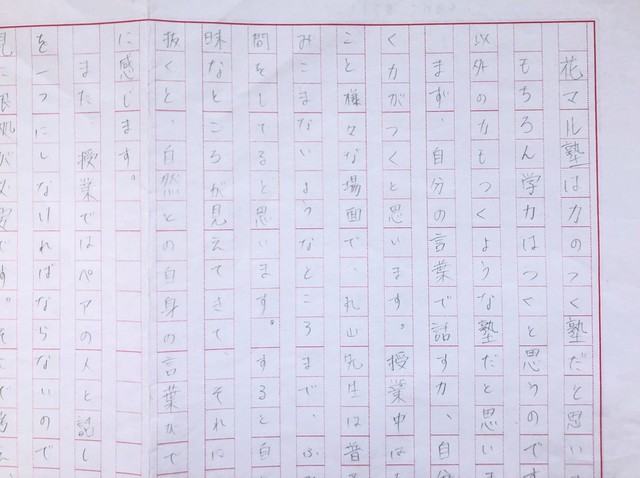 花マル塾は力のつく塾だと思い
もちろん学力はつくと思うのです
以外の力もつくような塾だと思いま
まず、自分の言葉で話す力、自分
く力がつくと思います。授業中は
こと様々な場面で、丸山先生は普
みこまないようなところまで、ふ
問をしてると思います。すると自
昧なところが見えてきて、それに
抜くと、自然との自身の言葉ひで
に感じます。
また、授業ではペアの人と話し
を一つにしなければならないので